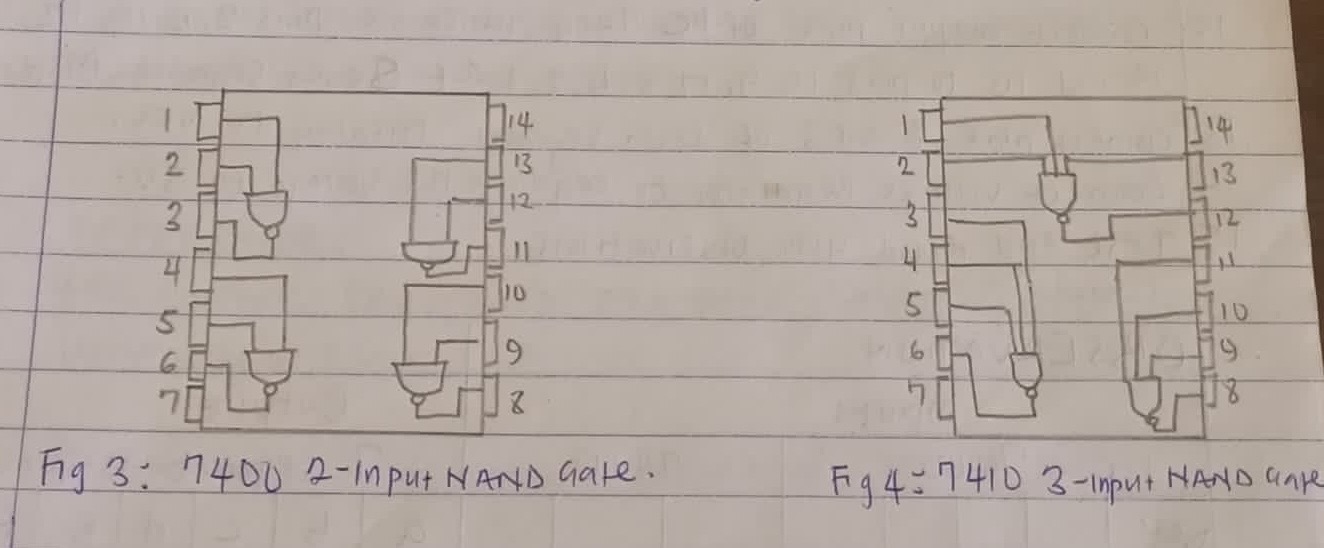 1
2
3
4
5
6
7
14
13
12
11
10
9
8
Fig 3: 7400 2-Input NAND Gate.
1
2
3
4
5
6
7
14
13
12
11
10
9
8
Fig 4: 7410 3-Input NAND Gate